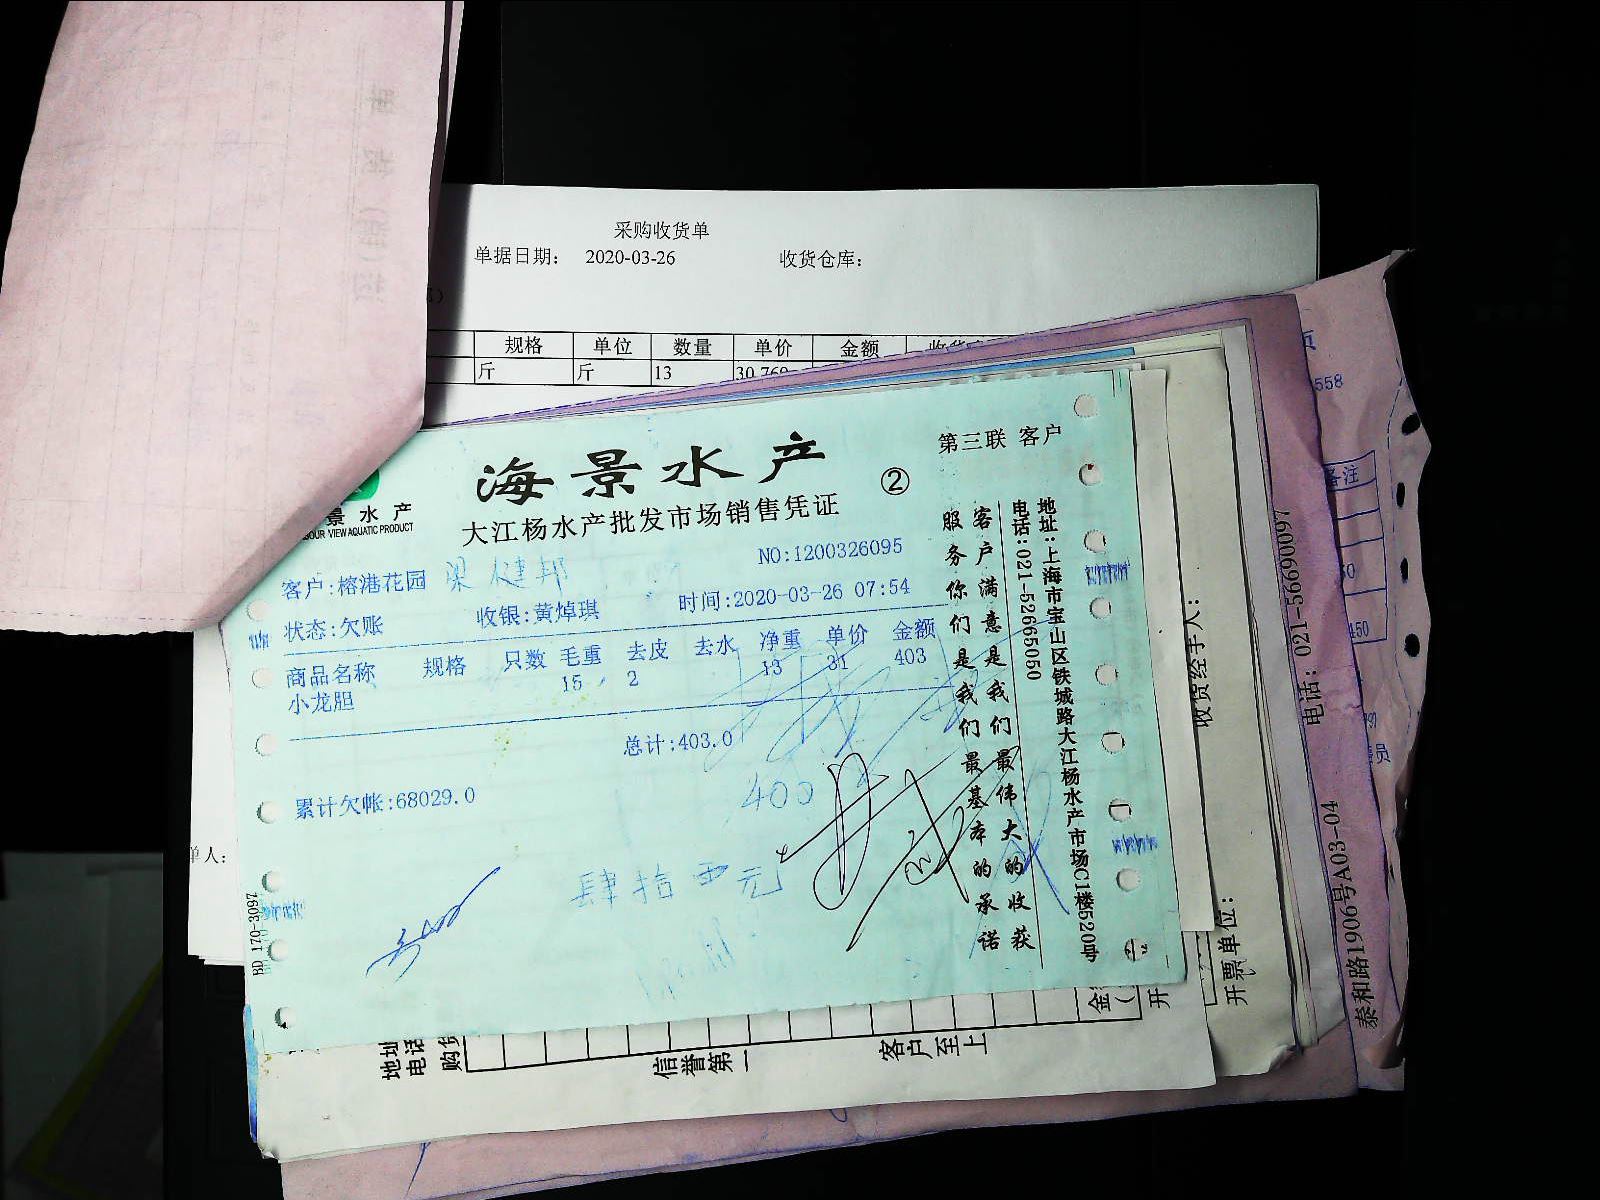 采购收货单
单据日期： 2020-03-26 收货仓库：
规格 单位 数量 单价 金额
斤 斤 13
第三联 客户
海景水产
②
景水产
VIEW AQUATIC PRODUCT
大江杨水产批发市场销售凭证
NO:1200326095
客户:榕港花园
状态:欠账 收银:黄焯琪 时间:2020-03-26 07:54
商品名称 规格 只数 毛重 去皮 去水 净重 单价 金额
小龙胆 15 2 13 31 403
总计:403.0
400
累计欠帐:68029.0
客户满意是我们最伟大的收获
服务你们是我们最基本的承诺
地址:上海市宝山区铁城路大江杨水产市场C1楼520号
电话:021-52665050
BD 170-3097
单人:
收货经手人:
开票单位:
电话: 021-56690097
泰和路1906号A03-04
558
备注
450
员
地址
电话
购货
信誉第一
客户至上